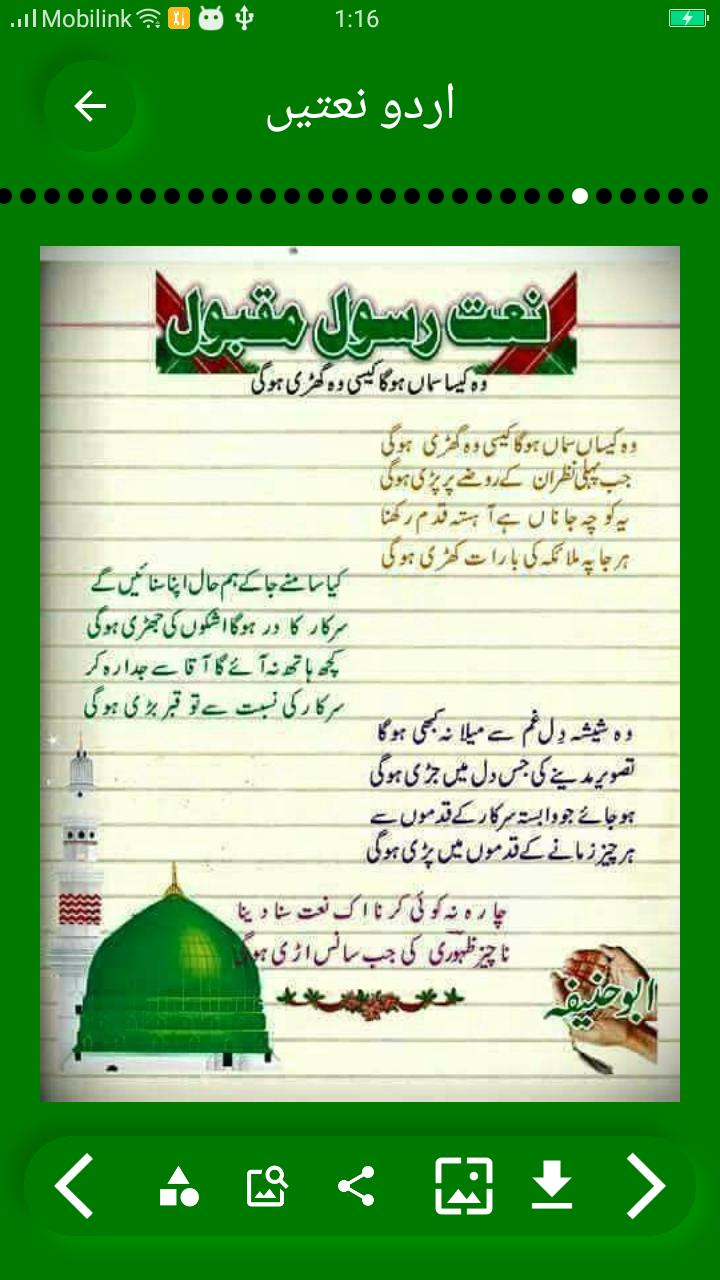 Mobilink 1:16
اردو نعتیں
نعت رسول مقبول
وہ کیسا سماں ہوگا کیسی وہ گھڑی ہوگی
وہ کیساں سماں ہوگا کیسی وہ گھڑی ہوگی
جب پہلی نظر ان کے روضے پر پڑی ہوگی
یہ کو چہ جاناں ہے آہستہ قدم رکھنا
ہر جا پہ ملائکہ کی بارات کھڑی ہوگی
کیا سامنے جا کے ہم حال اپنا سنائیں گے
سرکار کا در ہوگا اشکوں کی جھڑی ہوگی
کچھ ہاتھ نہ آئے گا آقا سے جدا رہ کر
سرکار کی نسبت سے تو قبر بڑی ہوگی
وہ شیشہ دِل غم سے میلا نہ کبھی ہوگا
تصویر مدینے کی جس دل میں جڑی ہوگی
ہو جائے جو وابستہ سرکار کے قدموں سے
ہر چیز زمانے کے قدموں میں پڑی ہوگی
چارہ نہ کوئی کرنا اک نعت سنا دینا
ناچیز ظہوری کی جب سانس اڑی ہوگی
ابو حنیفہ